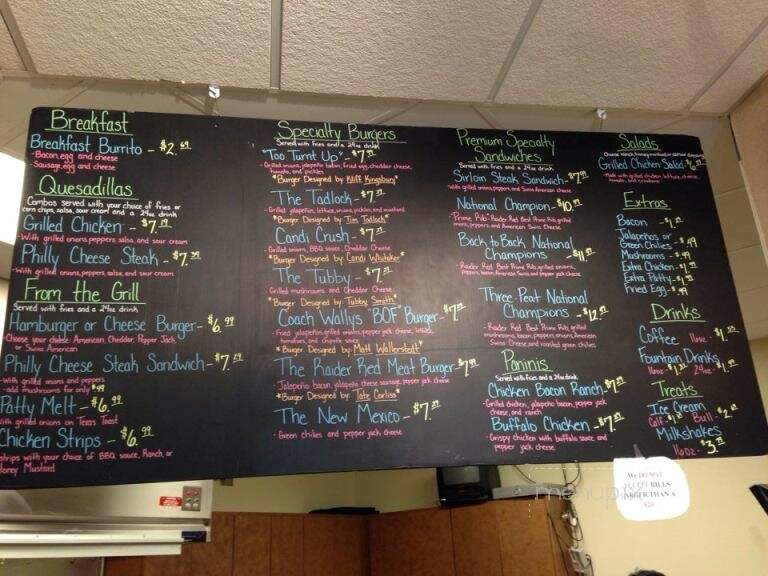 Breakfast
Breakfast Burrito - $2.
-Bacon, egg and cheese
-Sausage, egg and cheese
Quesadillas
Combos served with your choice of fries or
corn chips, salsa, sour cream and a 24oz drink
Grilled Chicken - $7.
-With grilled onions, peppers, salsa, and sour cream
Philly Cheese Steak - $7.
-With grilled onions, peppers, salsa, and sour cream
From the Grill
Served with fries and a 24oz drink
Hamburger or Cheese Burger - $6.99
Choose your cheese: American, Cheddar, Pepper Jack,
or Swiss American
Philly Cheese Steak Sandwich - $7.
-With grilled onions and peppers
add Mushrooms for only $.99
Patty Melt - $6.99
With grilled onions on Texas Toast
Chicken Strips - $6.99
strips with your choice of BBQ sauce, Ranch, or
Honey Mustard
Specialty Burgers
Served with fries and a 24oz drink
"Too Turnt Up" - $7.
-Grilled onions, jalapeño bacon, fried egg, cheddar cheese,
tomato, and pickles
*Burger Designed by Kliff Kingsbury*
The Tadlock - $7.
-Grilled jalapeño, lettuce, onions, pickles, and mustard
*Burger Designed by Tim Tadlock*
Candi Crush - $7.
-Grilled onions, BBQ sauce, Cheddar Cheese
*Burger Designed by Candi Whitaker*
The Tubby - $7.
-Grilled mushrooms and Cheddar Cheese
*Burger Designed by Tubby Smith*
Coach Wallys "BOF" Burger - $7.
-Fried jalapeño, grilled onions, pepper jack cheese,
tomatoes, and chipotle sauce
*Burger Designed by Matt Wallerstedt*
The Raider Red Meat Burger - $7.99
-Jalapeño bacon, jalapeño cheese sausage, pepper jack cheese
*Burger Designed by Tate Carlisa*
The New Mexico - $7.
-Green chilies and pepper jack cheese
Premium Specialty
Sandwiches
Served with fries and a 24oz drink
Sirloin Steak Sandwich - $7.
-With grilled onions, peppers, and Swiss American cheese
National Champion - $10.
-"Prime Rib" Raider Red Best Prime Rib, grilled
onions, peppers, and American Swiss Cheese
Back to Back National
Champions - $11.
-Raider Red Best Prime Rib, grilled onions,
peppers, bacon, American Swiss and pepper jack cheese
Three-Peat National
Champions - $12.
-Raider Red Best Prime Rib, grilled
mushrooms, bacon, peppers, onions, American
Swiss Cheese, and roasted green chilies
Paninis
Served with fries and a 24oz drink
Chicken Bacon Ranch $7.
-Grilled chicken, jalapeño bacon, pepper jack
cheese, and ranch
Buffalo Chicken - $7.
-Crispy chicken with buffalo sauce, and
pepper jack cheese
Salads
Choose ranch, honey mustard or
Grilled Chicken Salad - $6.
-Made with grilled chicken, lettuce, cheese,
tomato, and croutons
Extras
Bacon - $1.
Jalapeños or
Green Chilies - $.99
Mushrooms - $.99
Extra Chicken - $1.
Extra Patty - $1.
Fried Egg - $.99
Drinks
Coffee 16oz - $1.
Fountain Drinks
16oz - $1. 24oz - $1.
Treats
Ice Cream
Calf - $1. Bull - $2.
Milkshakes
16oz - $3.
We DO NOT
ACCEPT BILLS
LARGER THAN A
$20
menupix